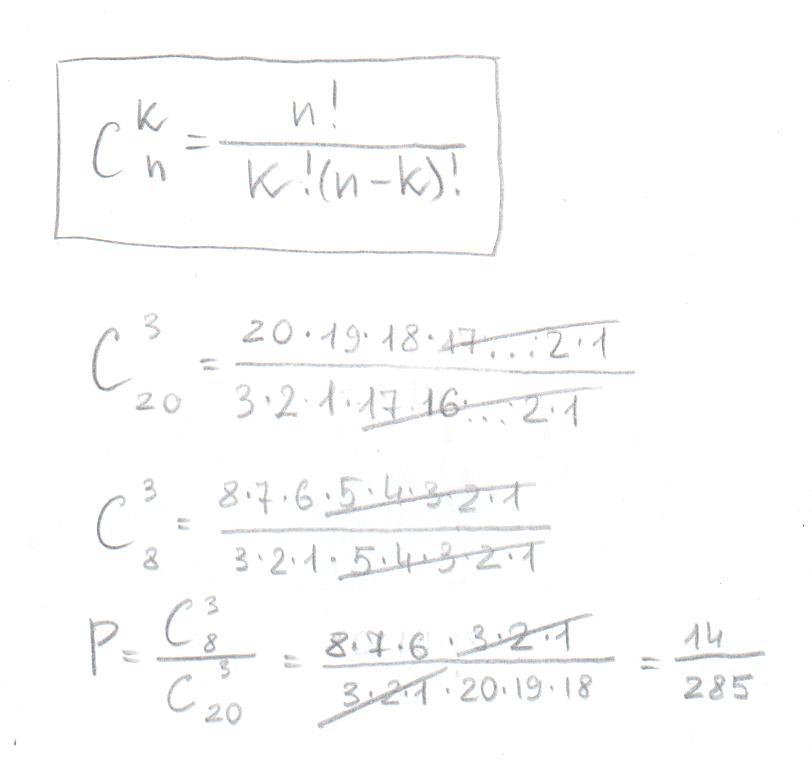 C_n^k = n! / K!(n-k)!
C_20^3 = 20·19·18·17...:2·1 / 3·2·1·17·16·...·2·1
C_8^3 = 8·7·6·5·4·3·2·1 / 3·2·1·5·4·3·2·1
P = C_8^3 / C_20^3 = 8·7·6·3·2·1 / 3·2·1·20·19·18 = 14 / 285